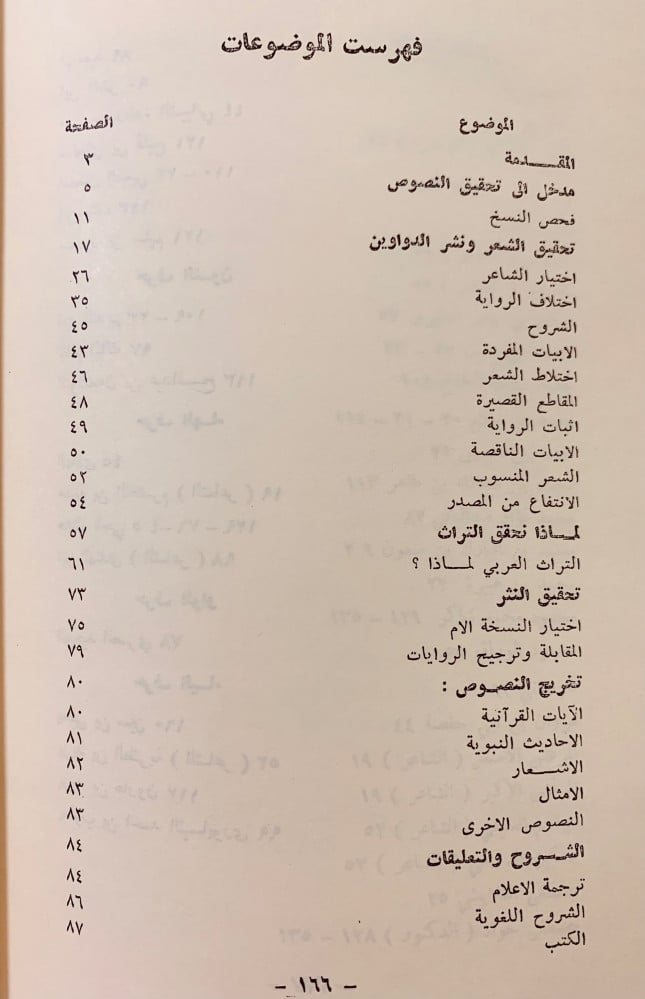 فهرست الموضوعات
الموضوع الصفحة
المقـــدمة ٣
مدخل الى تحقيق النصوص ٥
فحص النسخ ١١
تحقيق الشعر ونشر الدواوين ١٧
اختيار الشاعر ٢٦
اختلاف الرواية ٣٥
الشروح ٤٥
الابيات المفردة ٤٣
اختلاط الشعر ٤٦
المقاطع القصيرة ٤٨
اثبات الرواية ٤٩
الابيات الناقصة ٥٠
الشعر المنسوب ٥٢
الانتفاع من المصدر ٥٤
لمـــاذا نحقق التراث ٥٧
التراث العربي لمـــاذا ؟ ٦١
تحقيق النثر ٧٣
اختيار النسخة الام ٧٥
المقابلة وترجيح الروايات ٧٩
تخريج النصــوص : ٨٠
الآيات القرآنية ٨٠
الاحاديث النبوية ٨١
الاشـــعار ٨٢
الامثال ٨٣
النصوص الاخرى ٨٣
الشـــروح والتعليقات ٨٤
ترجمة الاعلام ٨٤
الشروح اللغوية ٨٦
الكتب ٨٧
– ١٦٦ –